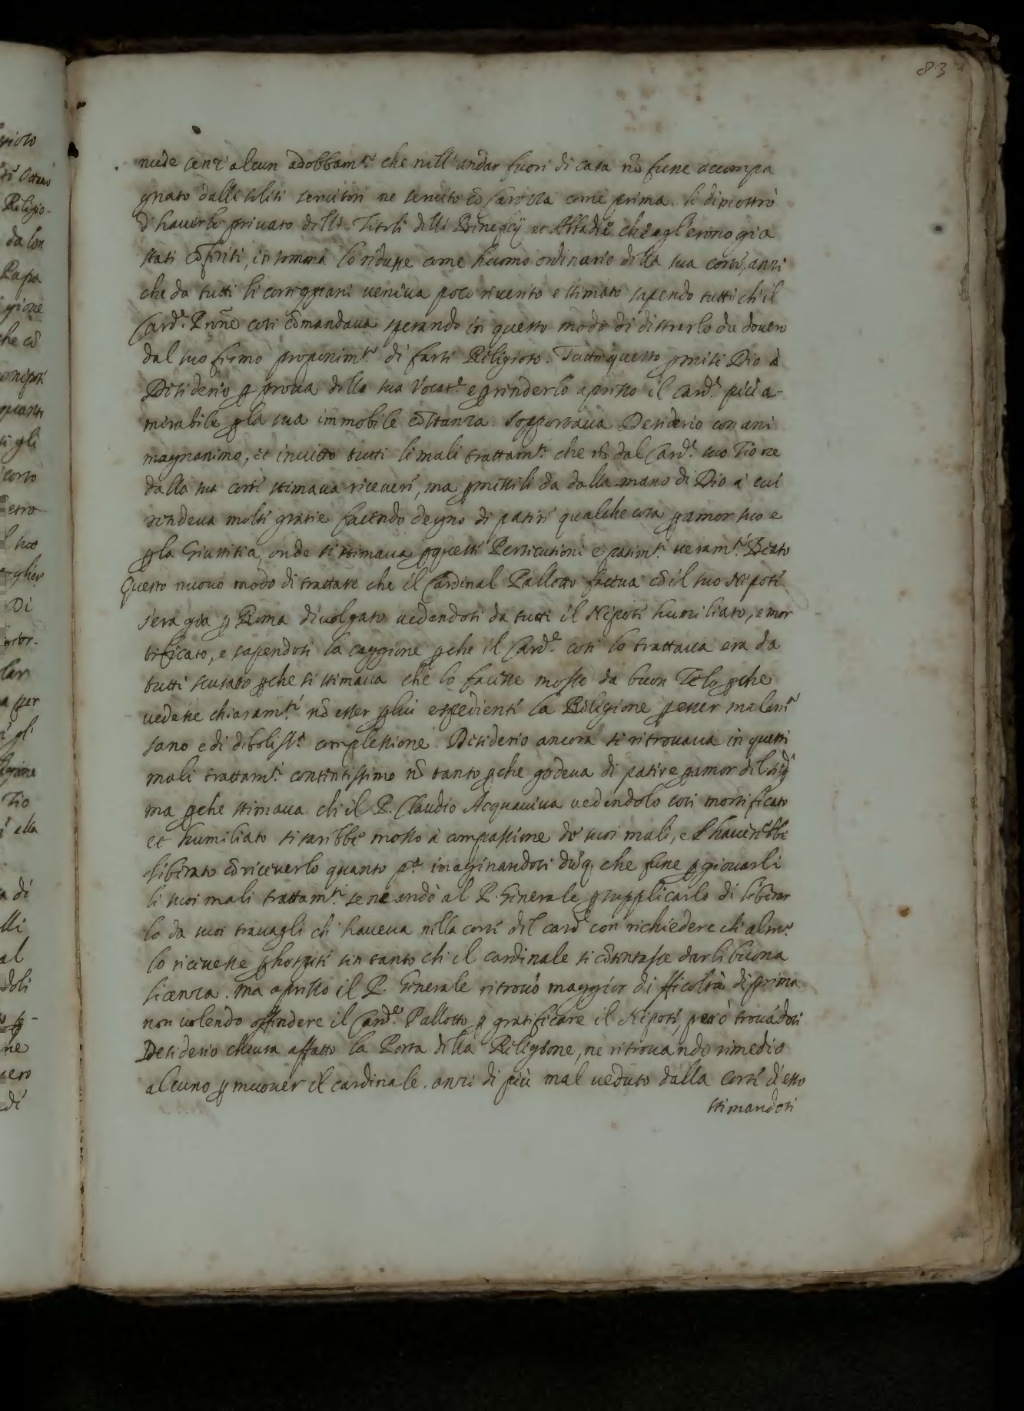 83
nude senz' alcun adobbam.to che nell'andar fuori di casa nõ fusse acompa
gnato dalli soliti servitori ne servito cõ Carozza come prima. Si dimostrò
d'haverlo privato delli Titoli delli Beneficij et Abbadie che gl'erono gia
stati cõferiti, in somma lo ridusse come huomo ordinario della sua corte, anzi
che da tutti li corteggiani veniva poco riverito e stimato sapendo tutti che il
Card.e Prõne così cõmandava sperando in questo modo di distrarlo da dovero
dal suo fermo proponim.to di farsi Religioso. Tutto questo ꝑmise Dio à
Desiderio ꝑ prova della sua Vocat.e e ꝑ renderlo apresso il Card.e più a-
mirabile ꝑ la sua immobile cõstanza. Sopportava Desiderio con ani
magnanimo, et invitto tutti li mali trattam.ti che nõ dal Card.e suo Tio ne
dalla sua corte stimava ricevere, ma ꝑmessili da dalla mano di Dio à cui
rendeva molte gratie facendo degno di patire qualche cosa ꝑ amor suo e
ꝑ la Giustitia onde si stimava ꝑ queste Persecutioni e patim.ti veram.te Beato
Questo nuovo modo di trattare che il Cardinal Pallotto faceva cõ il suo Nipote
s'era gia ꝑ Roma divolgato vedendosi da tutti il Nipote humiliato, e mor
tificato, e sapendosi la caggione ꝑche il Card.e così lo trattava era da
tutti scusato ꝑche si stimava che lo facesse mosso da buon Zelo ꝑche
vedesse chiaram.te nõ esser ꝑ lui espediente la Religione ꝑ esser malam.te
sano e di deboliss.a complessione. Desiderio ancora si ritrovava in questi
mali trattam.ti contentissimo nõ tanto ꝑche godeva di patire ꝑ amor del Sig.
ma ꝑche stimava che il P. Claudio Acquaviva vedendolo così mortificato
et humiliato si sarebbe mosso à compassione de' suoi mali, e l'haverebbe
liberato cõ riceverlo quanto p.a imaginandosi dũq. che fusse ꝑ giovarli
li suoi mali trattam.ti se ne andò al P. Generale ꝑ supplicarlo di liberar
lo da suoi travagli ch'haveva nella corte del Card.e con richiedere che alm.o
lo ricevesse ꝑ hospite sin tanto che il cardinale si cõtentasse darli buona
licenza. Ma apresso il P. Generale ritrovò maggior difficoltà di prima
non volendo offendere il Card.e Pallotto ꝑ gratificare il Nipote, però trovãdosi
Desiderio chiusa affatto la Porta della Religione, ne ritrovando rimedio
alcuno ꝑ muover il cardinale. anzi di più mal veduto dalla corte d'esso
stimandosi